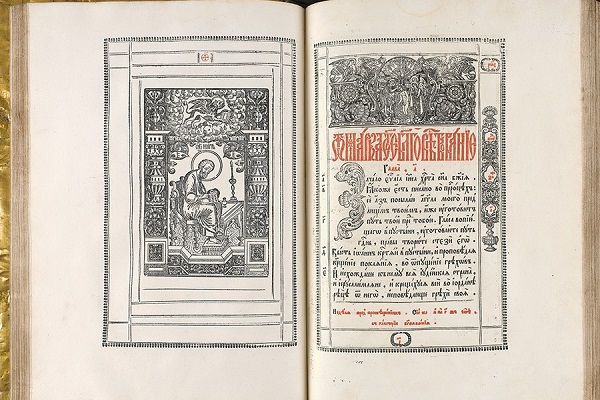 Ѿ МАРКА СТ҃ОЕ БЛ҃ГОВѢСТВОВАНІЕ
Глава, а҃
Зачало еѵⷢ҇лїа іс҃а хрⷭ҇та сн҃а бж҃їѧ.
Ꙗкоже есть писано во прⷪ҇рцехъ:
се азъ посылаю аг҃г҃ла моего пред
лицемъ твоимъ, иже ѹготовитъ
путь твой пред тобою. Гласъ вопїю
щаго в пустыни, ѹготовайте путь
гдⷭ҇нь, правы творите стезѧ его.
Бысть іѡаннъ крⷭ҇тѧй в пустыни, и проповѣдаѧ
крⷭ҇щенїе покаѧнїѧ, во ѿпущенїе грѣховъ.
И исхождаше къ нему всѧ їудейскаѧ страна,
и іерⷭ҇лимлѧне, и крⷭ҇щахусѧ вси во іѡрданѣ
рѣцѣ ѿ него, исповѣдающе грѣхи своѧ.
Недѣлѧ пред просвѣщенїемъ.